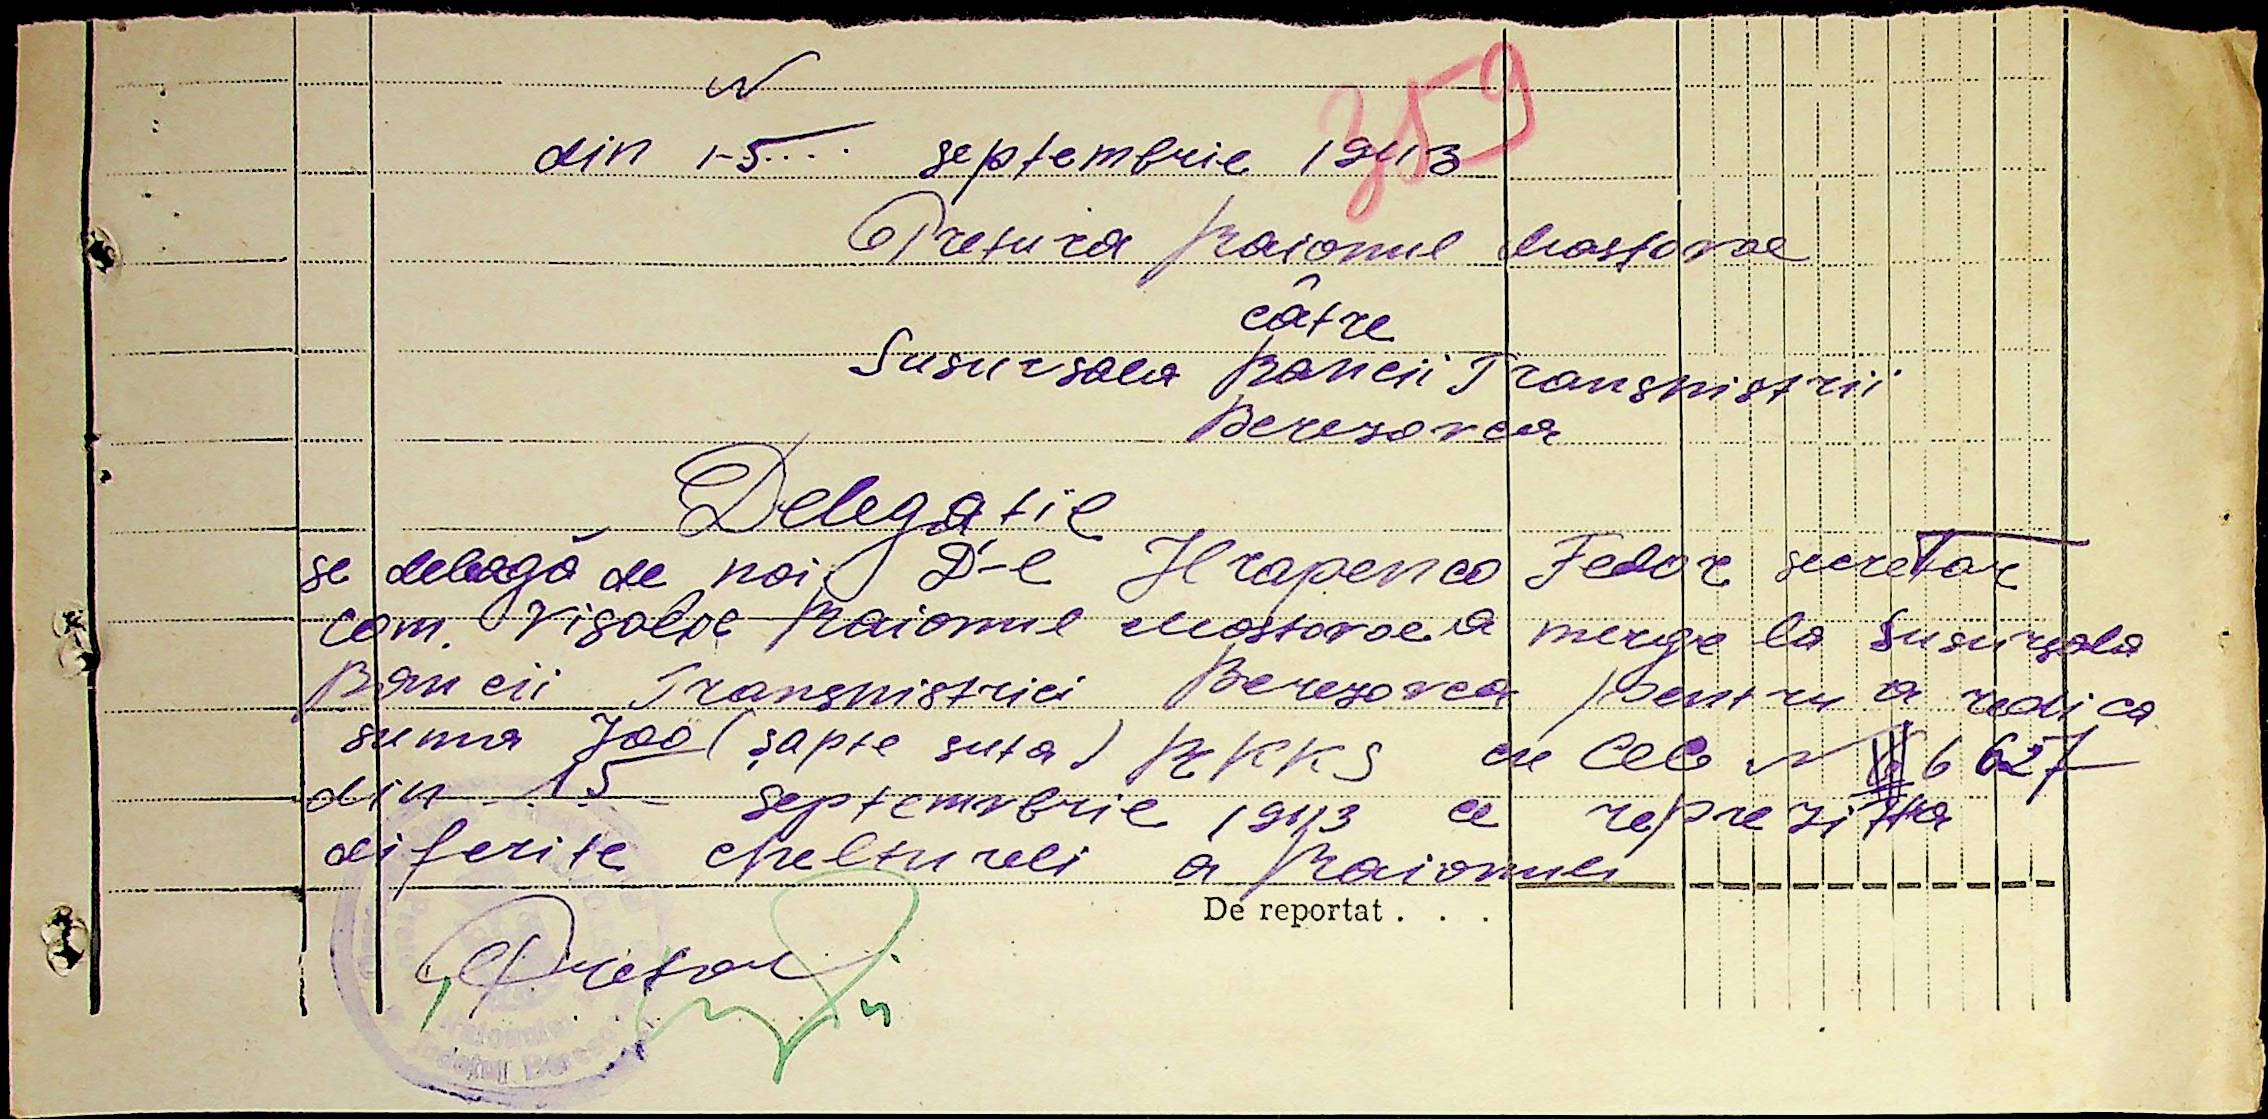 N
359
din 15.... septembrie 1943
Pretura Raionul Mostovoe
cãtre
Susursala Bancii Transnistrii
Beresovca
Delegatie
se delegă de noi D-l Hrapenco Fedor secretar
com. Raionul Mostovoe a merge la Susursala
Bancii Transnistriei Beresovca pentru a redica
suma 700 (șapte suta) RKKS cu CEC N 6627
din 15 septembrie 1943 ce reprezinta
diferite cheltureli a Raionuli
De reportat . . .
Pretor
Județul